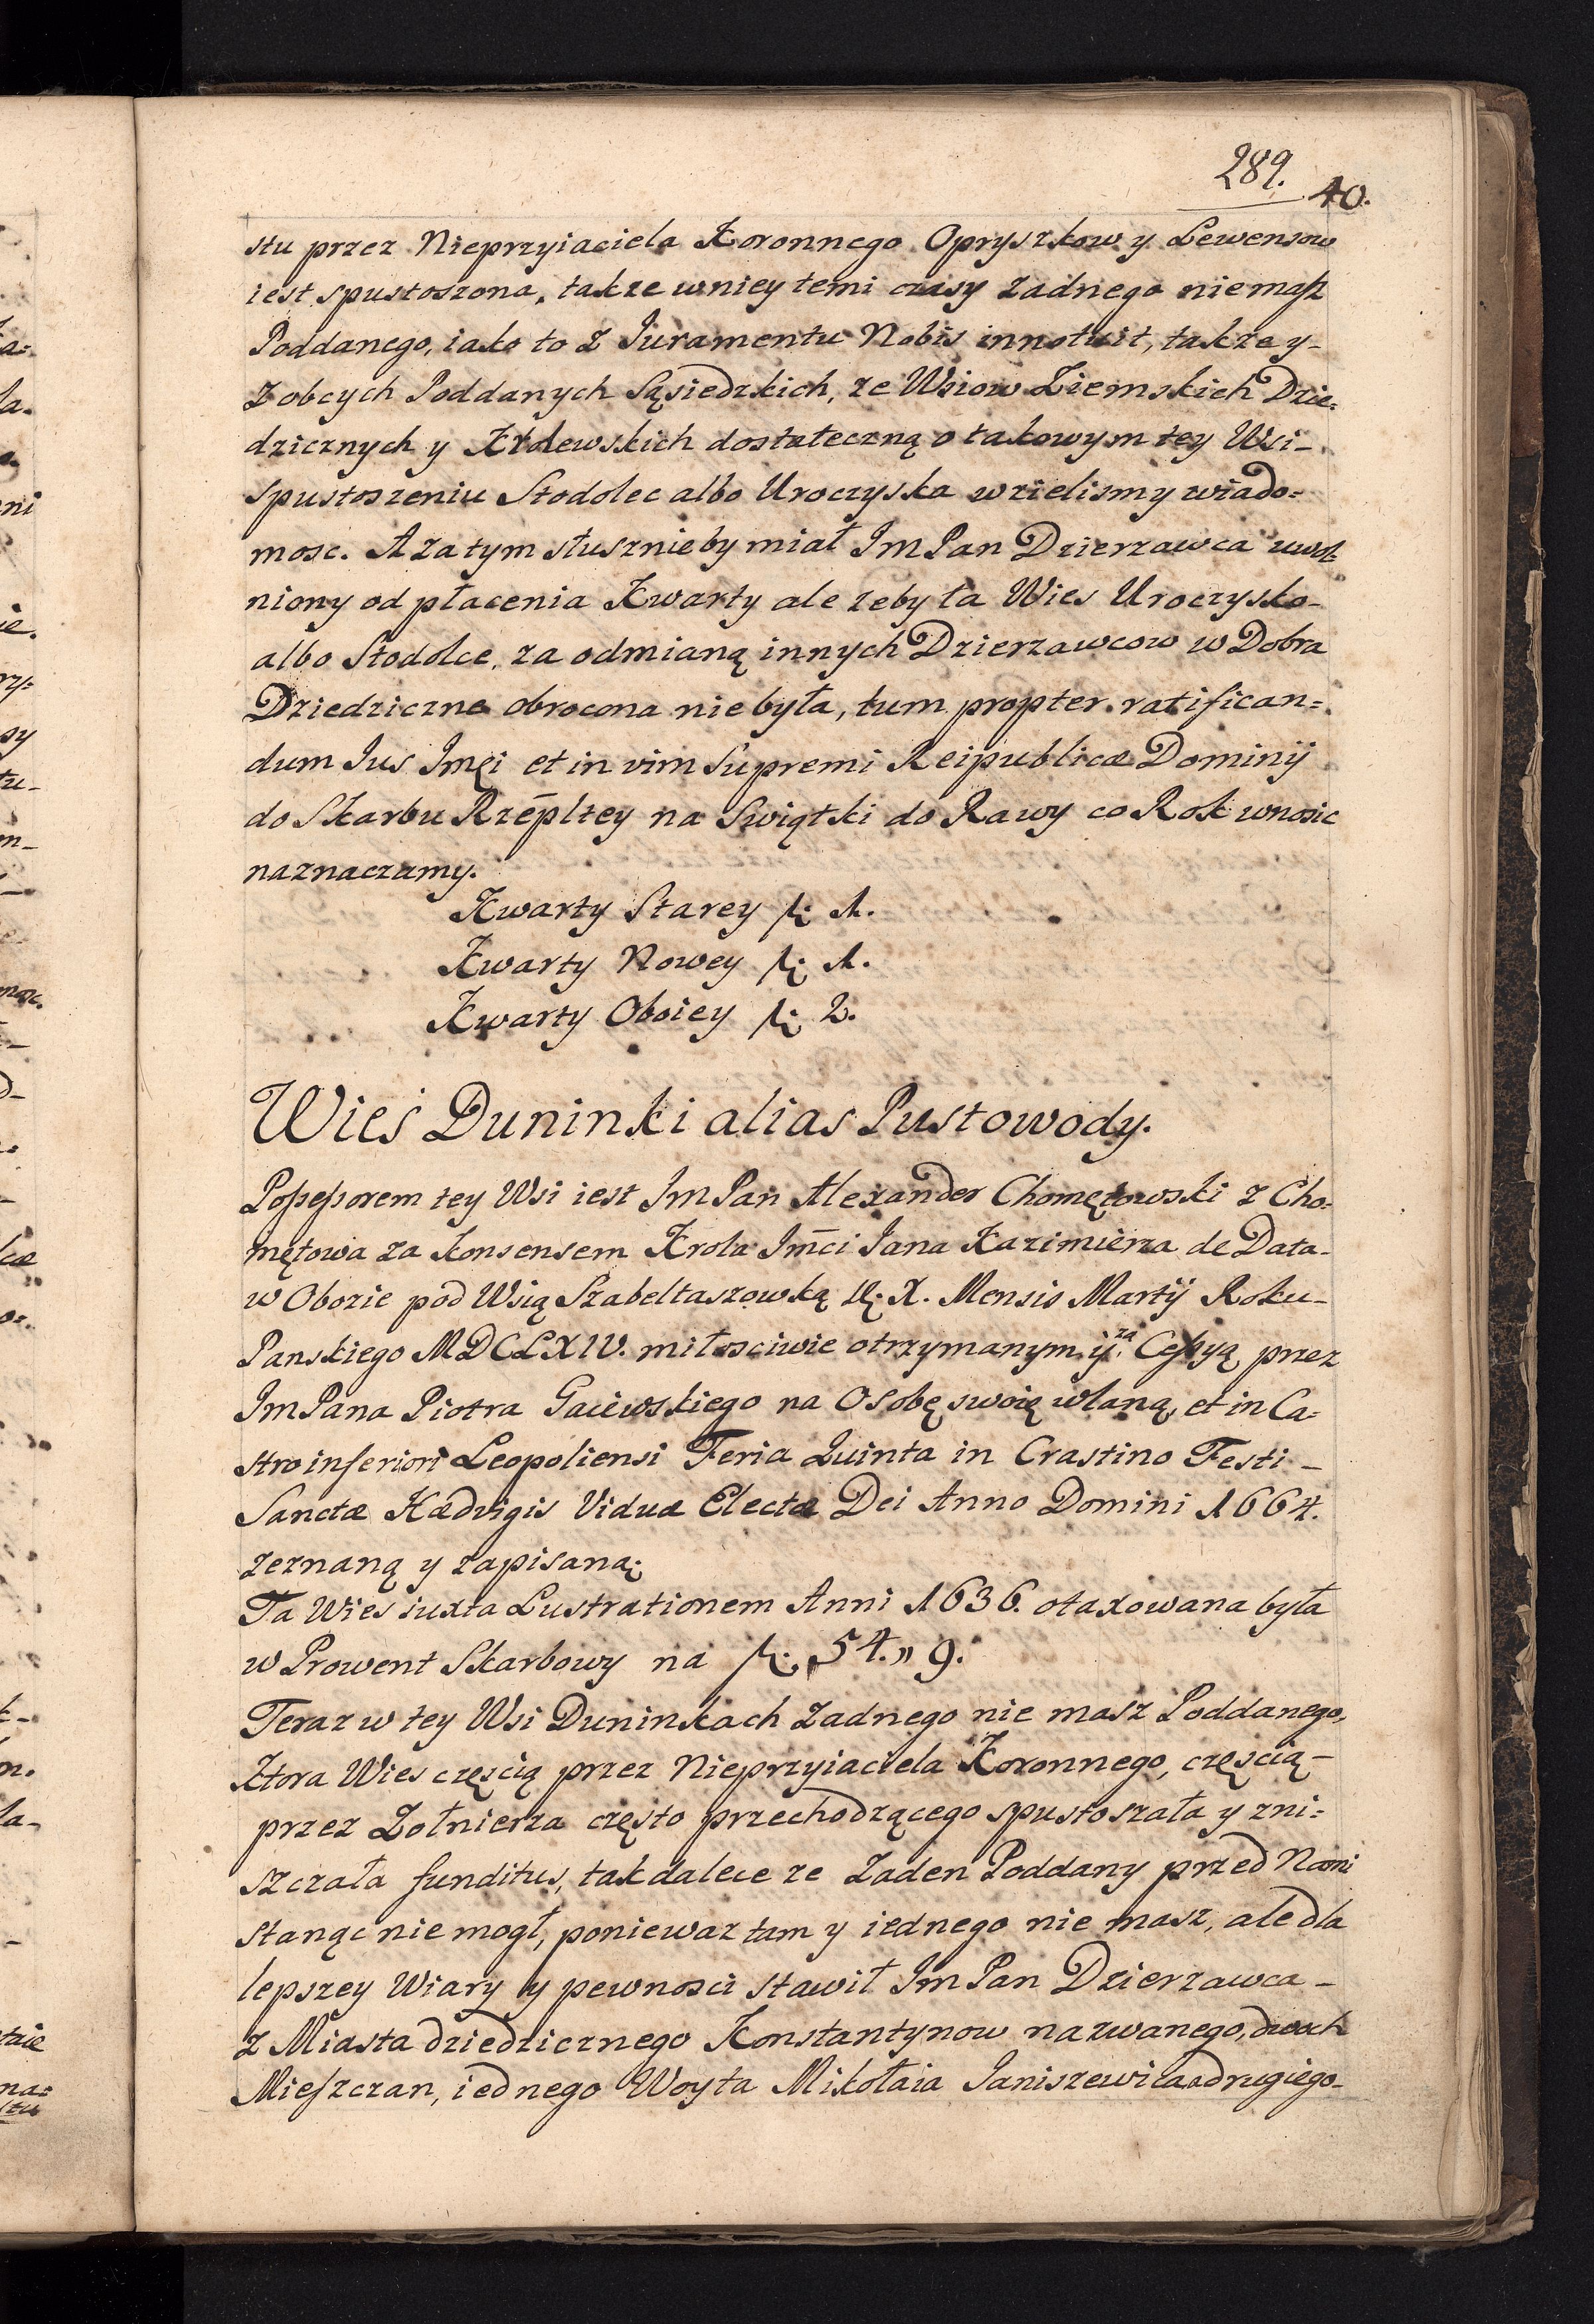 289. 40.
stu przez Nieprzyiaciela Koronnego Opryszkow y Lewensow
iest spustoszona, takze wniey temi czasy Zadnego niemasz
Poddanego, iako to Z Iuramentu Nobis innotuit, takze y-
Z obcych Poddanych Sąsiedzkich, ze Wsiow Ziemskich Dzie=
dzicznych y Krolewskich dostateczną o takowym tey Wsi-
Spustoszeniu Stodolec albo Uroczyska wzielismy wiado=
mosc. A zatym słusznieby miał Im Pan Dzierzawca uwol=
niony od płacenia Kwarty ale zeby ta Wies Uroczysko-
albo Stodolce, za odmianą innych Dzierzawcow w Dobra
Dziedziczne obrocona niebyła, tum propter ratifican=
dum Ius Imęi et in vim Supremi Reipublicæ Dominij
do Skarbu Rzepltey na Swiątki do Rawy co Rok wnosic
naznaczamy.
Kwarty Starey f: 1.
Kwarty Nowey f: 1.
Kwarty Oboiey f: 2.
Wieś Duninki alias Pustowody.
Possessorem tey Wsi iest Im Pan Alexander Chomętowski z Cho=
mętowa za Konsensem Krola Imci Iana Kazimierza de Data-
w Obozie pod Wsią Szabeltaszowką D: X. Mensis Martij Roku-
Panskiego MDCLXIV. miłosciwie otrzymanym ij za Cessyą przez
Im Pana Piotra Gaiewskiego na Osobę swoię wlaną, et in Ca=
stro inferiori Leopoliensi Feria Quinta in Crastino Festi-
Sanctæ Hædvigis Viduæ Electæ Dei Anno Domini 1664.
zeznaną y zapisaną.
Ta Wies iuxta Lustrationem Anni 1636. otaxowana była
w Prowent Skarbowy na f: 54.,, 9.
Teraz w tey Wsi Duninkach Zadnego nie masz Poddanego,
Ktora Wies częscią przez Nieprzyiaciela Koronnego, częscią-
przez Zołnierza często przechodzącego spustoszała y zni=
szczała funditus, tak dalece ze Zaden Poddany przed Nami
stanąc nie mogł, poniewaz tam y iednego nie masz, ale dla
lepszey Wiary y pewnosci stawił Im Pan Dzierzawca-
z Miasta dziedzicznego Konstantynow nazwanego, dwoch
Mieszczan, iednego Woyta Mikołaia Ianiszewica a drugiego-